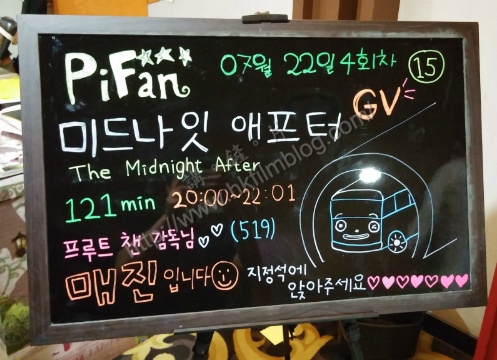 PiFan 07월 22일 4회차 15
GV
미드나잇 애프터
The Midnight After
121 min 20:00~22:01
프루트 챈 감독님 (519)
매진입니다
지정석에
앉아주세요